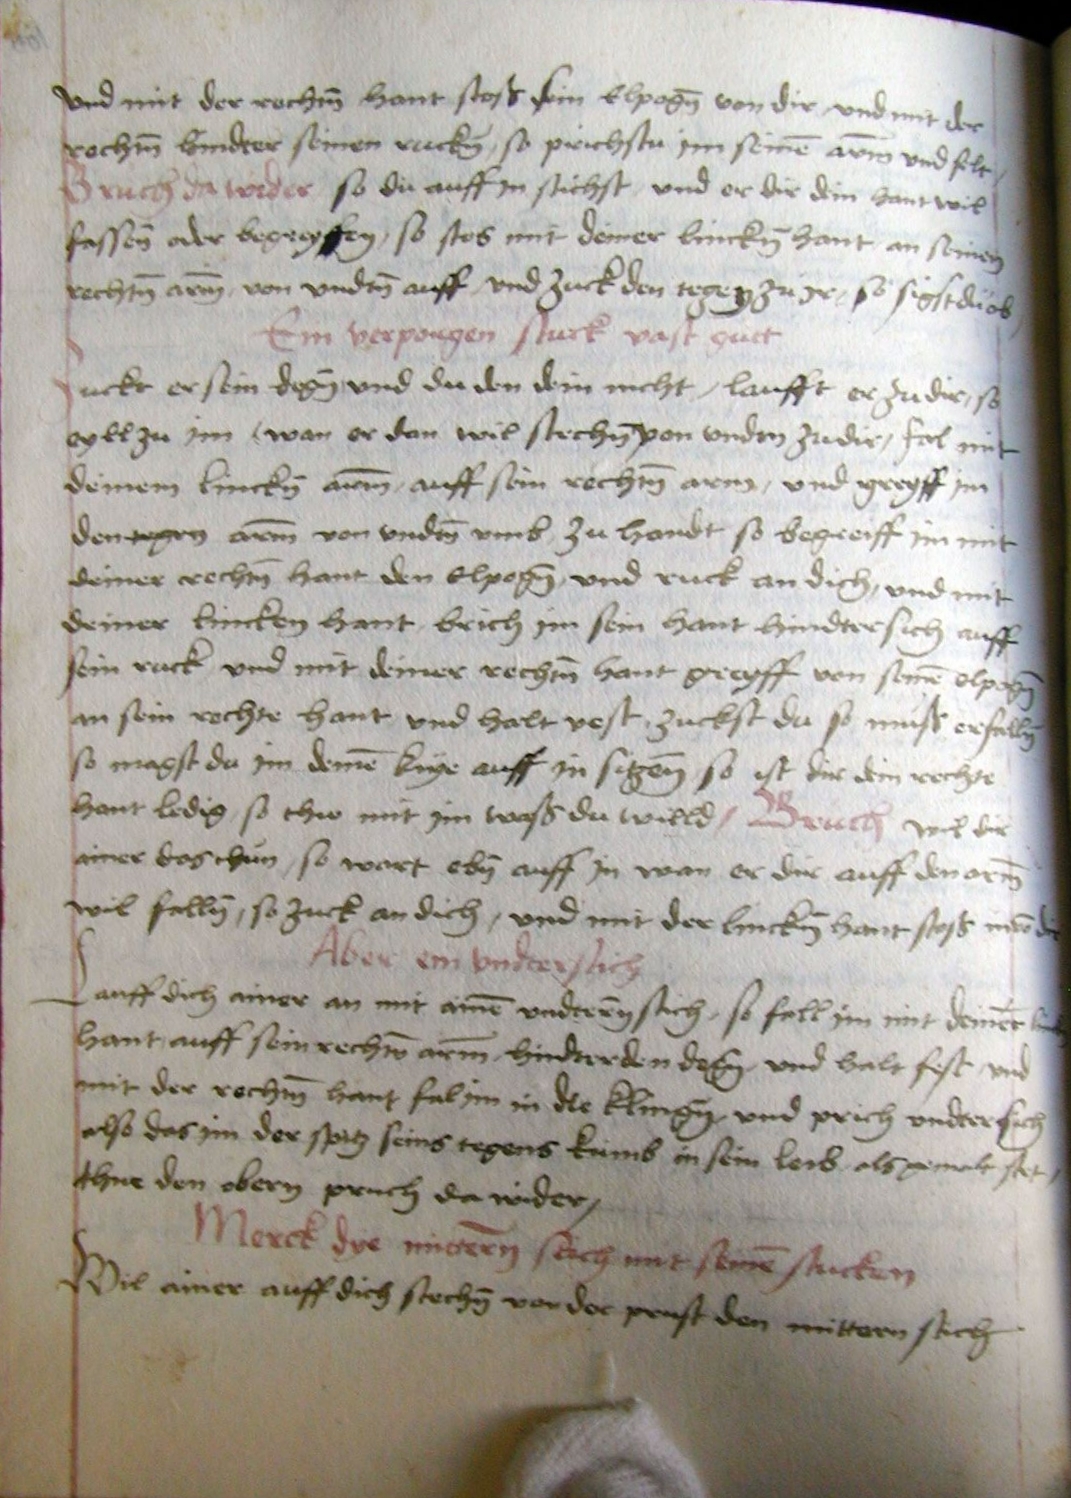 vnd mit der rechtñ hant stoss sein elpogñ von dir vnd mit der
rechtñ hindter seinen ruckñ, so prichstu im seinē arm̄ vnd felt,
Bruch da wider so du auff in stichst vnd er dir dein hant wil
fassen̄ oder begreyffen, so stos mit deiner linckñ hant an seinen
rechtñ arm̄ von vndtñ auff vnd zuck den tegen zu ge, so sigst du ob,
Ein verporgen stuck vast gutt
Zuckt er sein degñ vnd du den dein nicht, laufft er zu dir, so
eyll zu im (wan er dan wil stechñ von vndtn zu dir, fal mit
deinem linckñ arm̄ auff sein rechtñ arm, vnd greyff im
den arm̄ von vndtñ vmb, zu handt so begreiff im mit
deiner rechtñ hant den elpogñ, vnd ruck an dich, vnd mit
deiner lincken hant brich im sein hant hindtersich auff
sein ruck vnd mit deiner rechtñ hant greyff von seinē elpogñ
an sein rechte hant vnd halt vest, zuckst du so muss er fallñ
so magst du im deinē knye auff in setzen̄, so ist dir dein rechte
hant ledig, so thue mit im wass du willd, Bruch wil dir
ainer das thun, so wart ebñ auff in wan er dir auff den arm̄
wil fallñ, so zuck an dich, vnd mit der linckñ hant stoss in vō dir
Aber ein vndterstich
Lauff dich ainer an mit ainē vndtern̄ stich, so fall im mit deiner
hant auff sein rechtñ arm̄ hindter den degñ, vnd halt fest, vnd
mit der rechtñ hant fal im in die klingñ, vnd prich vndtersich
also das im der spitz seins tegens kumb in sein leib als gemalt stet,
thue den obern pruch da wider,
Merck dye mittern̄ stich mit seinē stucken
Wil ainer auff dich stechñ vor der prust den mittern stich